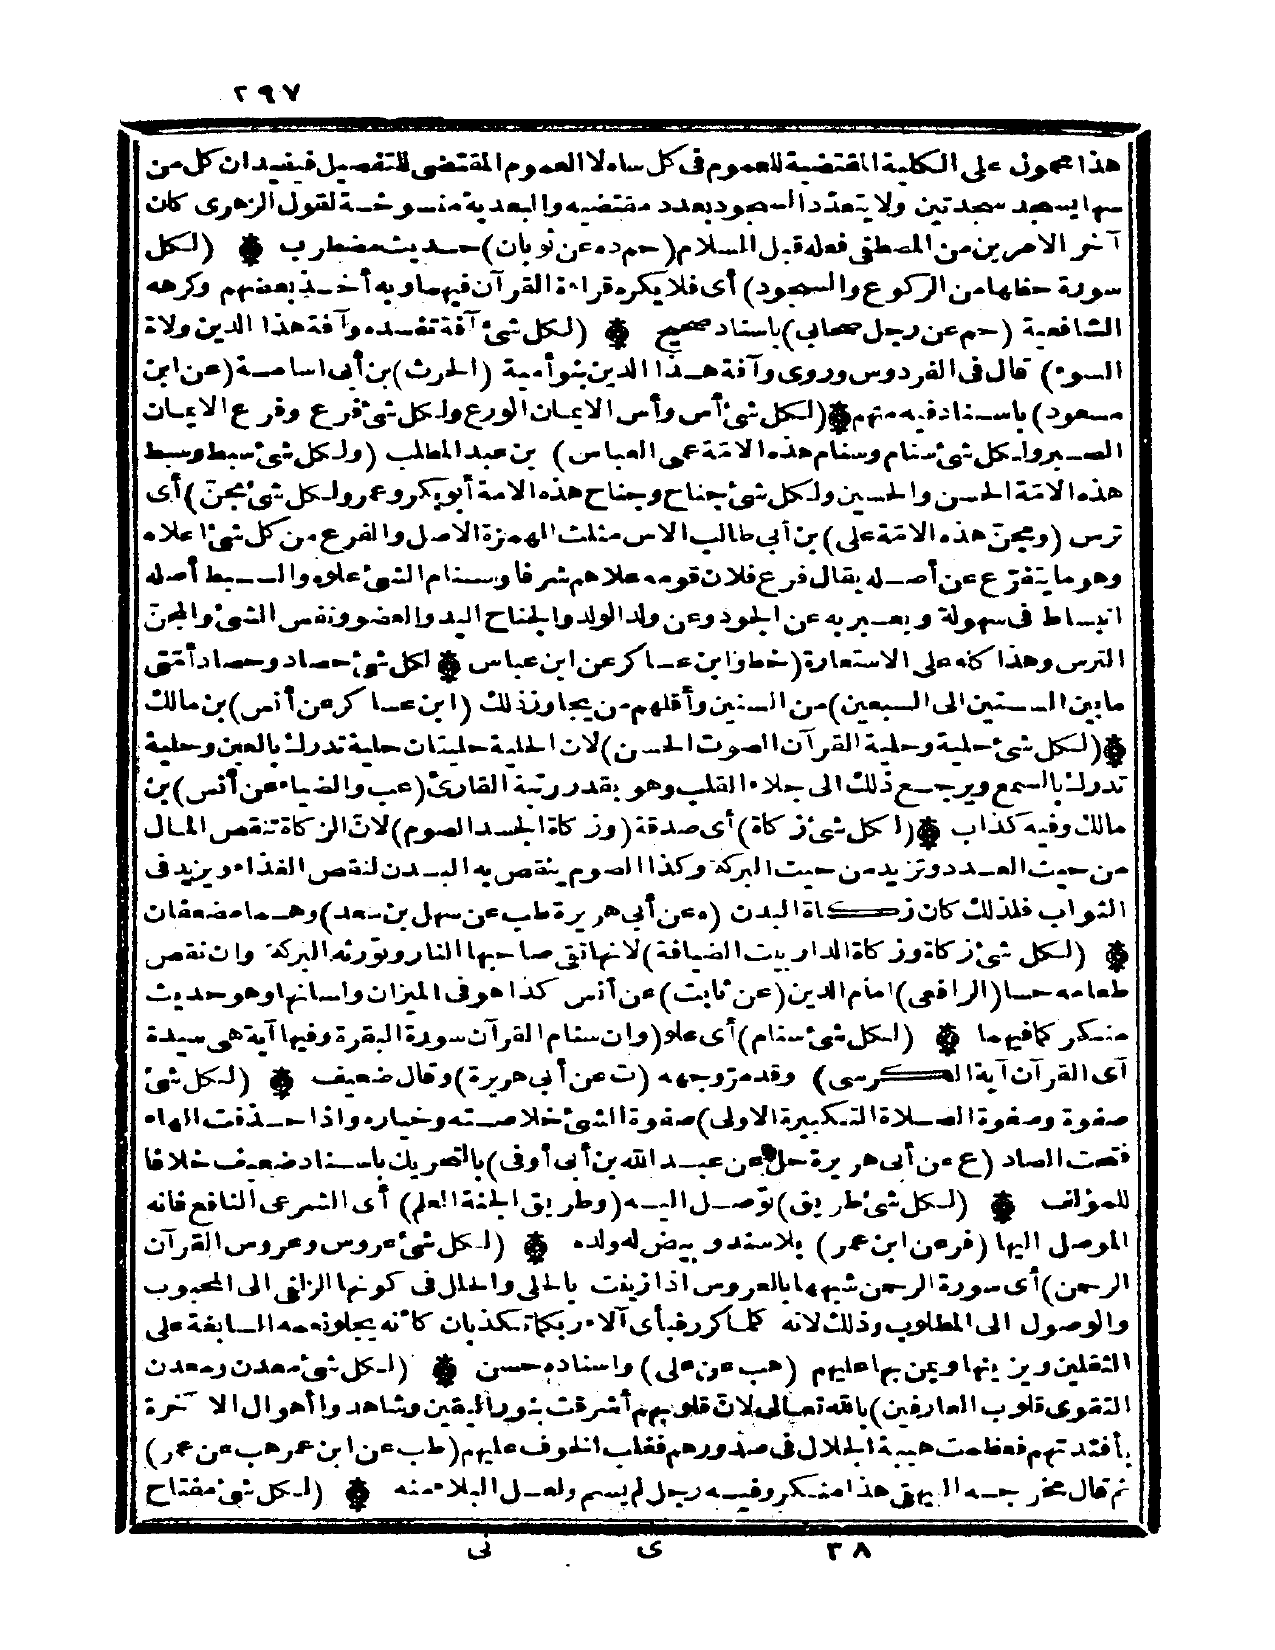 ٢٩٧
هذا محمول على الكلية المقتضية للعموم فى كل ساه لا العموم المقتضى للتفصيل فيفيد ان كل من
سها يسجد سجدتين ولا يتعدّد السجود بعدد مقتضيه والبعدية منسوخة لقول الزهرى كان
آخر الامرين من المصطفى فعله قبل السلام (حم د ه عن ثوبان) حديث مضطرب ۞ (لكل
سورة حظها من الركوع والسجود) أى فلا يكره قراءة القرآن فيهما وبه أخذ بعضهم وكرهه
الشافعية (حم عن رجل) صحابى) باسناد صحيح ۞ (لكل شئ آفة تفسده وآفة هذا الدين ولاة
السوء) قال فى الفردوس وروى وآفة هذا الدين بنو أمية (الحرث) بن أبى اسامة (عن ابن
مسعود) باسناد فيه متهم ۞ (لكل شئ أس وأس الايمان الورع ولكل شئ فرع وفرع الايمان
الصبر ولكل شئ سنام وسنام هذه الامة عمى العباس) بن عبد المطلب (ولكل شئ سبط وسبط
هذه الامّة الحسن والحسين ولكل شئ جناح وجناح هذه الامة أبو بكر وعمر ولكل شئ مجنّ) أى
ترس (ومجنّ هذه الامّة على) بن أبى طالب الاس مثلث الهمزة الاصل والفرع من كل شئ اعلاه
وهو ما يتفرّع عن أصله يقال فرع فلان قومه علاهم شرفا وسنام الشئ علوه والسبط أصله
انبساط فى سهولة ويعبر به عن الجود وعن ولد الولد والجناح اليد والعضو ونفس الشئ والمجنّ
الترس وهذا كله على الاستعارة (خط وابن عساكر عن ابن عباس ۞ لكل شئ حصاد وحصاد أمّتى
ما بين الستين الى السبعين) من السنين وأقلهم من يجاوز ذلك (ابن عساكر عن أنس) بن مالك
۞ (لكل شئ حلية وحلية القرآن الصوت الحسن) لان الحلية حليتان حلية تدرك بالعين وحلية
تدرك بالسمع ويرجع ذلك الى جلاء القلب وهو بقدر رتبة القارئ (عب والضياء عن أنس) بن
مالك وفيه كذاب ۞ (لكل شئ زكاة) أى صدقة (وزكاة الجسد الصوم) لانّ الزكاة تنقص المال
من حيث العدد وتزيد من حيث البركة وكذا الصوم ينقص به البدن لنقص الغذاء ويزيد فى
الثواب فلذلك كان زكاة البدن (ه عن أبى هريرة طب عن سهل بن سعد) وهما مضعفان
۞ (لكل شئ زكاة وزكاة الدار بيت الضيافة) لانها تقى صاحبها النار وتورثه البركة وان نقص
طعامه حسا (الرافعى) امام الدين (عن ثابت) عن أنس كذا هو فى الميزان ولسانها وهو حديث
منكر كما فيهما ۞ (لكل شئ سنام) أى علو (وان سنام القرآن سورة البقرة وفيها آية هى سيدة
آى القرآن آية الكرسى) وقد مرّ وجهه (ت عن أبى هريرة) وقال ضعيف ۞ (لكل شئ
صفوة وصفوة الصلاة التكبيرة الاولى) صفوة الشئ خلاصته وخياره واذا حذفت الهاء
فتحت الصاد (ع عن أبى هريرة حل عن عبد الله بن أبى أوفى) بالتحريك باسناد ضعيف خلافا
للمؤلف ۞ (لكل شئ طريق) توّصل اليه (وطريق الجنة العلم) أى الشرعى النافع فانه
الموصل اليها (فر عن ابن عمر) بلا سند وبيض له ولده ۞ (لكل شئ عروس وعروس القرآن
الرحمن) أى سورة الرحمن شبهها بالعروس اذا زينت بالحلى والحلل فى كونها الزلفى الى المحبوب
والوصول الى المطلوب وذلك لانه كلما كرر فبأى آلاء ربكما تكذبان كأنه يجلو نعمه السابغة على
الثقلين ويزينها ويمن بها عليهم (هب عن على) واسناده حسن ۞ (لكل شئ معدن ومعدن
التقوى قلوب العارفين) بالله تعالى لانّ قلوبهم أشرقت بنور اليقين وشاهدوا أهوال الآخرة
بأفئدتهم فعظمت هيبة الجلال فى صدورهم فغلب الخوف عليهم (طب عن ابن عمر هب عن عمر)
ثم قال مخرجه البيهقى هذا منكر وفيه رجل لم يسم ولعل البلاء منه ۞ (لكل شئ مفتاح
٣٨ ى نى